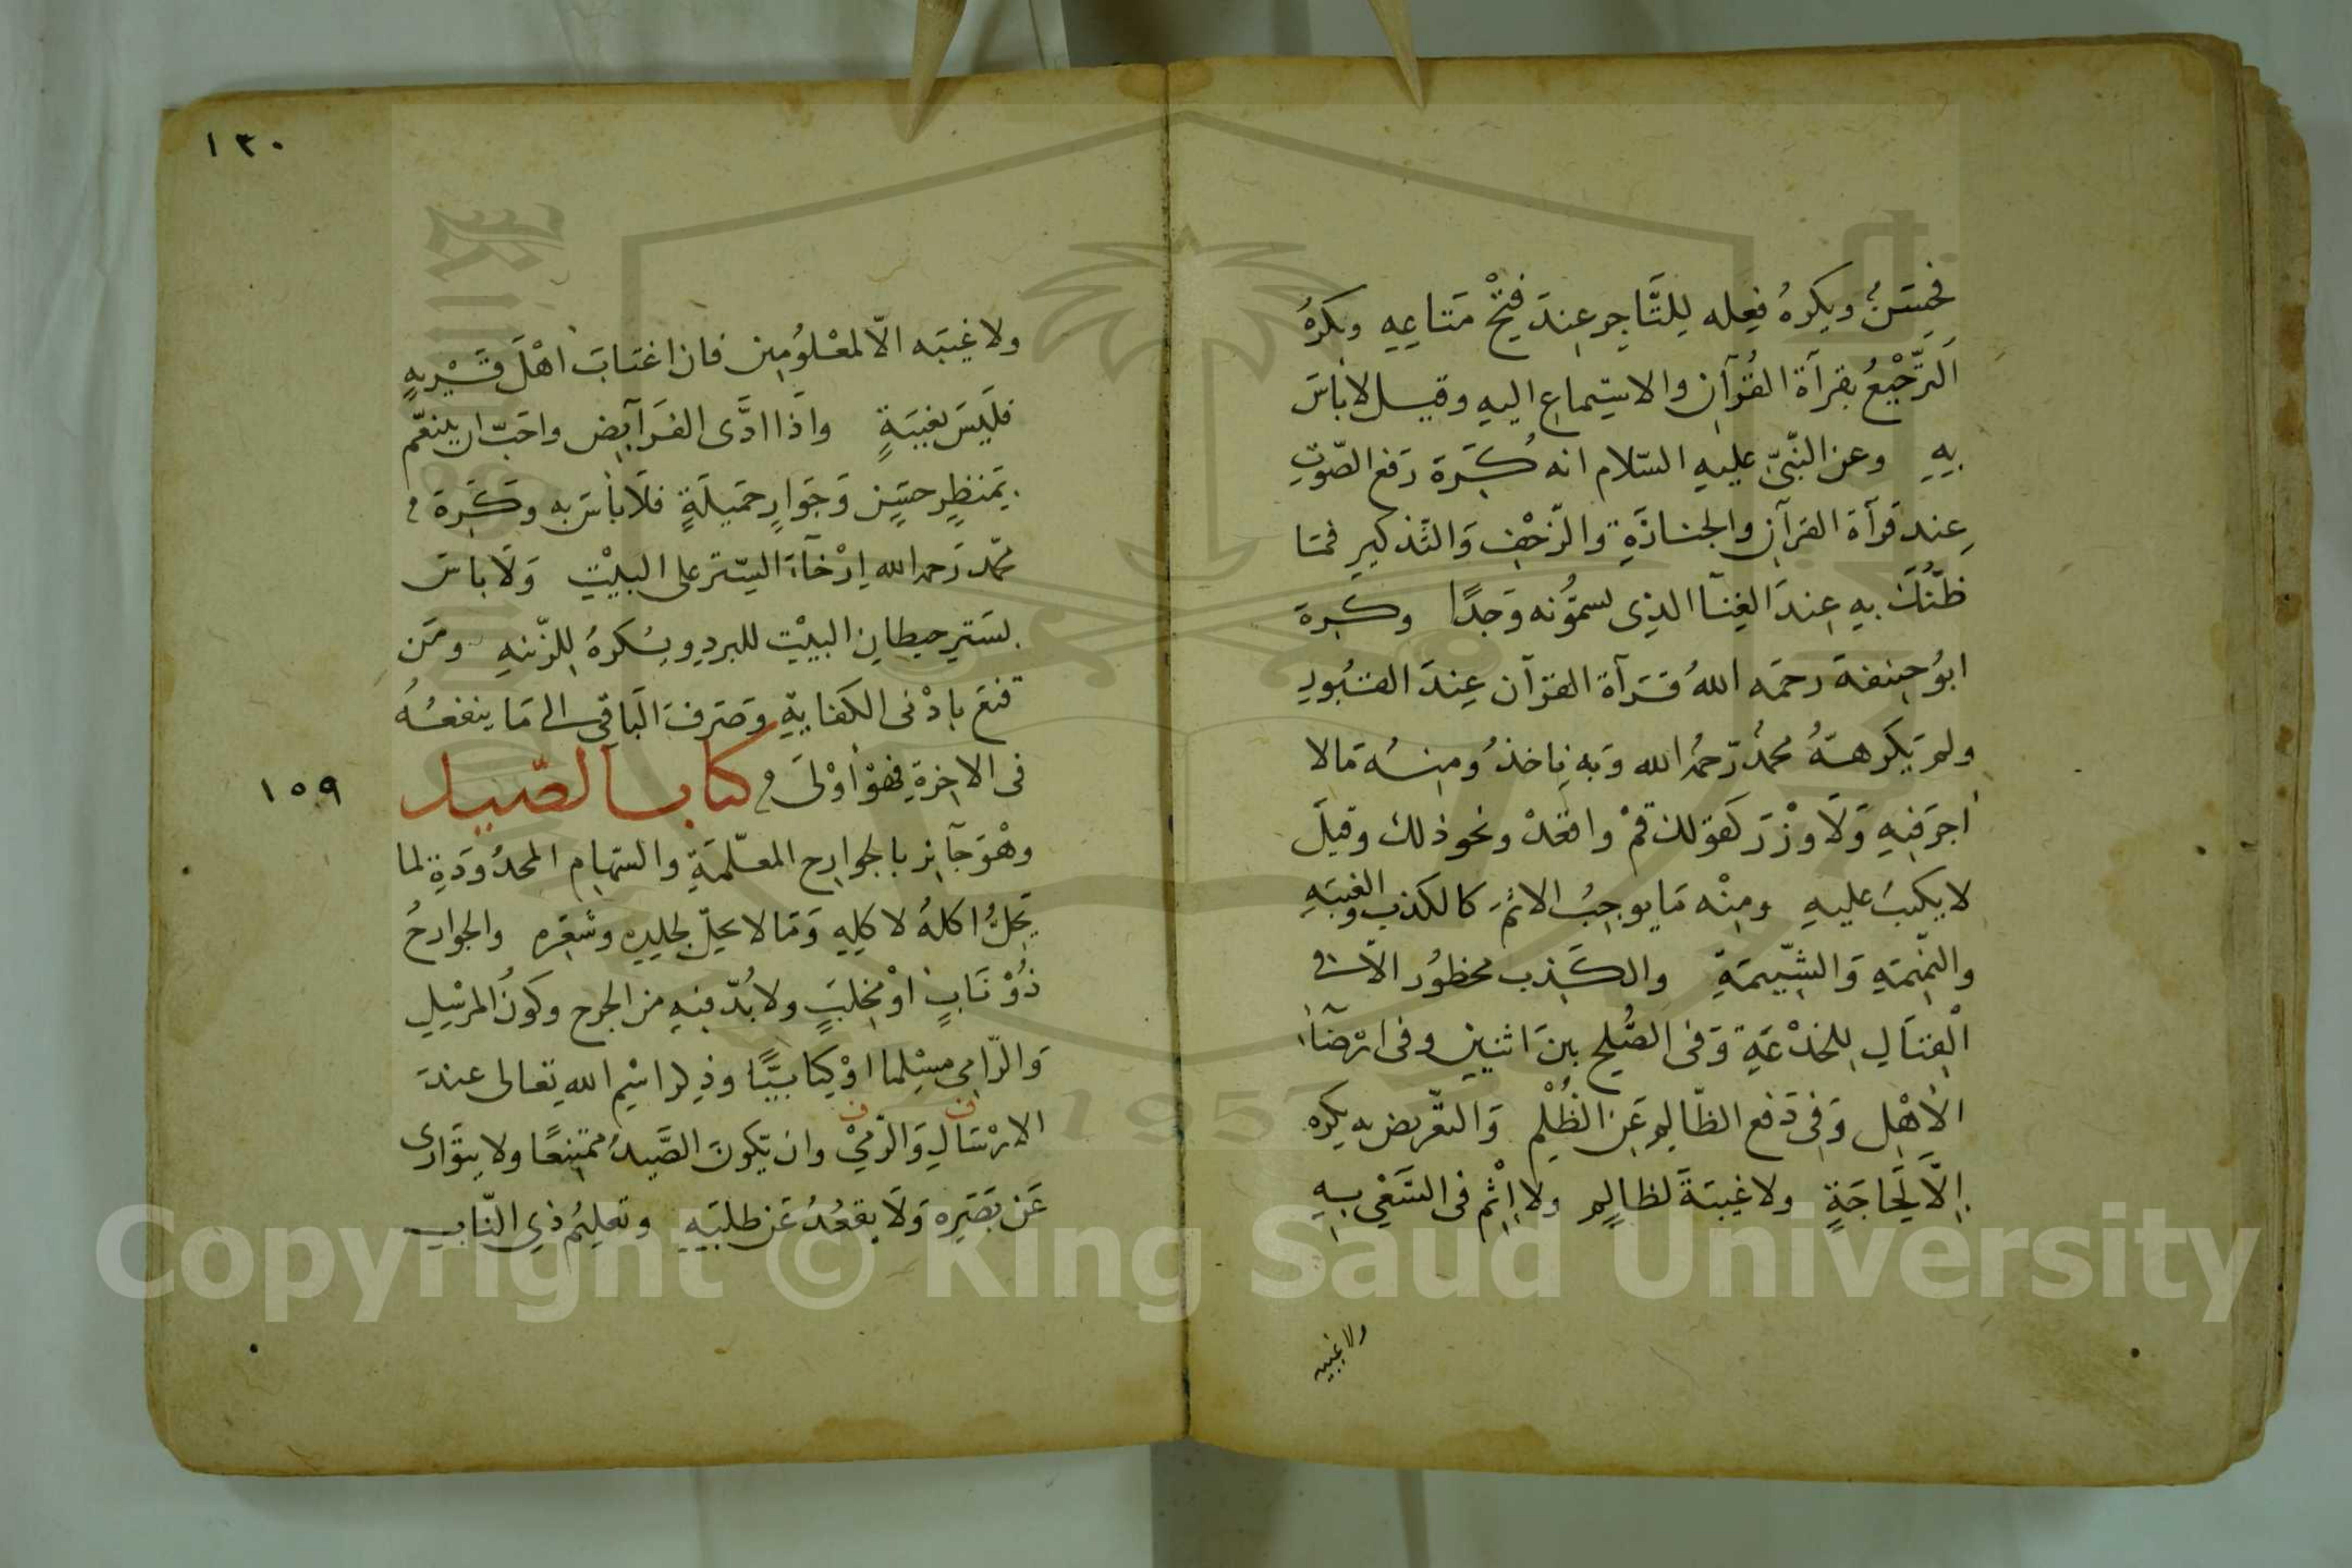 فحسن ويكره فعله للتاجر عند فتح متاعه ويكره
الترجيع بقرآة القرآن والاستماع اليه وقيل لا باس
به وعن النبي عليه السلام انه كره رفع الصوت
عند قرآة القرآن والجنازة والزحف والتذكير فما
ظنك به عند الغنآ الذى يسمونه وجدًا وكره
ابو حنيفة رحمه الله قرآة القرآن عند القبور
ولم يكرهه محمد رحمه الله وبه ناخذ ومنه مالا
اجر فيه ولا وزر كقولك قم واقعد ونحو ذلك وقيل
لا يكتب عليه ومنه ما يوجب الاثم كالكذب والغيبة
والنميمة والشتيمة والكذب محظور الا فى
القتال للخدعة وفى الصلح بين اثنين وفى ارضآء
الاهل وفى دفع الظالم عن الظلم والتعريض به يكره
الا لحاجة ولا غيبة لظالم ولا اثم فى السعي به
ولا غيبة
١٣٠
ولا غيبه الا لمعلومين فان اغتاب اهل قرية
فليس بغيبة واذا ادى الفرآيض واحب ان يتنعم
بمنظر حسن وجوار جميلة فلا باس به وكره
محمد رحمه الله ارخآء الستر على البيت ولا باس
بستر حيطان البيت للبرد ويكره للزينه ومن
قنع بادنى الكفاية وصرف الباقى الى ما ينفعه
فى الاخرة فهو اولى كتاب الصيد
١٥٩
وهو جآيز بالجوارح المعلمة والسهام المحدودة لما
يحل اكله لاكله وما لا يحل لجلده وشعره والجوارح
ذو ناب او مخلب ولا بد فيه من الجرح وكون المرسل
والرامى مسلما او كتابيا وذكر اسم الله تعالى عند
الارسال والرمي وان يكون الصيد ممتنعا ولا يتوارى
عن بصره ولا يقعد عن طلبه وتعليم ذي الناب
Copyright © King Saud University
1957